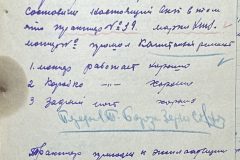 Составили настоящий Акт в том
что трактор № 39. марки
мотор № прошол Капитальный ремонт
1. мотор работает хорошо
2 Коробка — хорошо
3 Задний мост хорошо
Трактор пригоден к эксплоатации